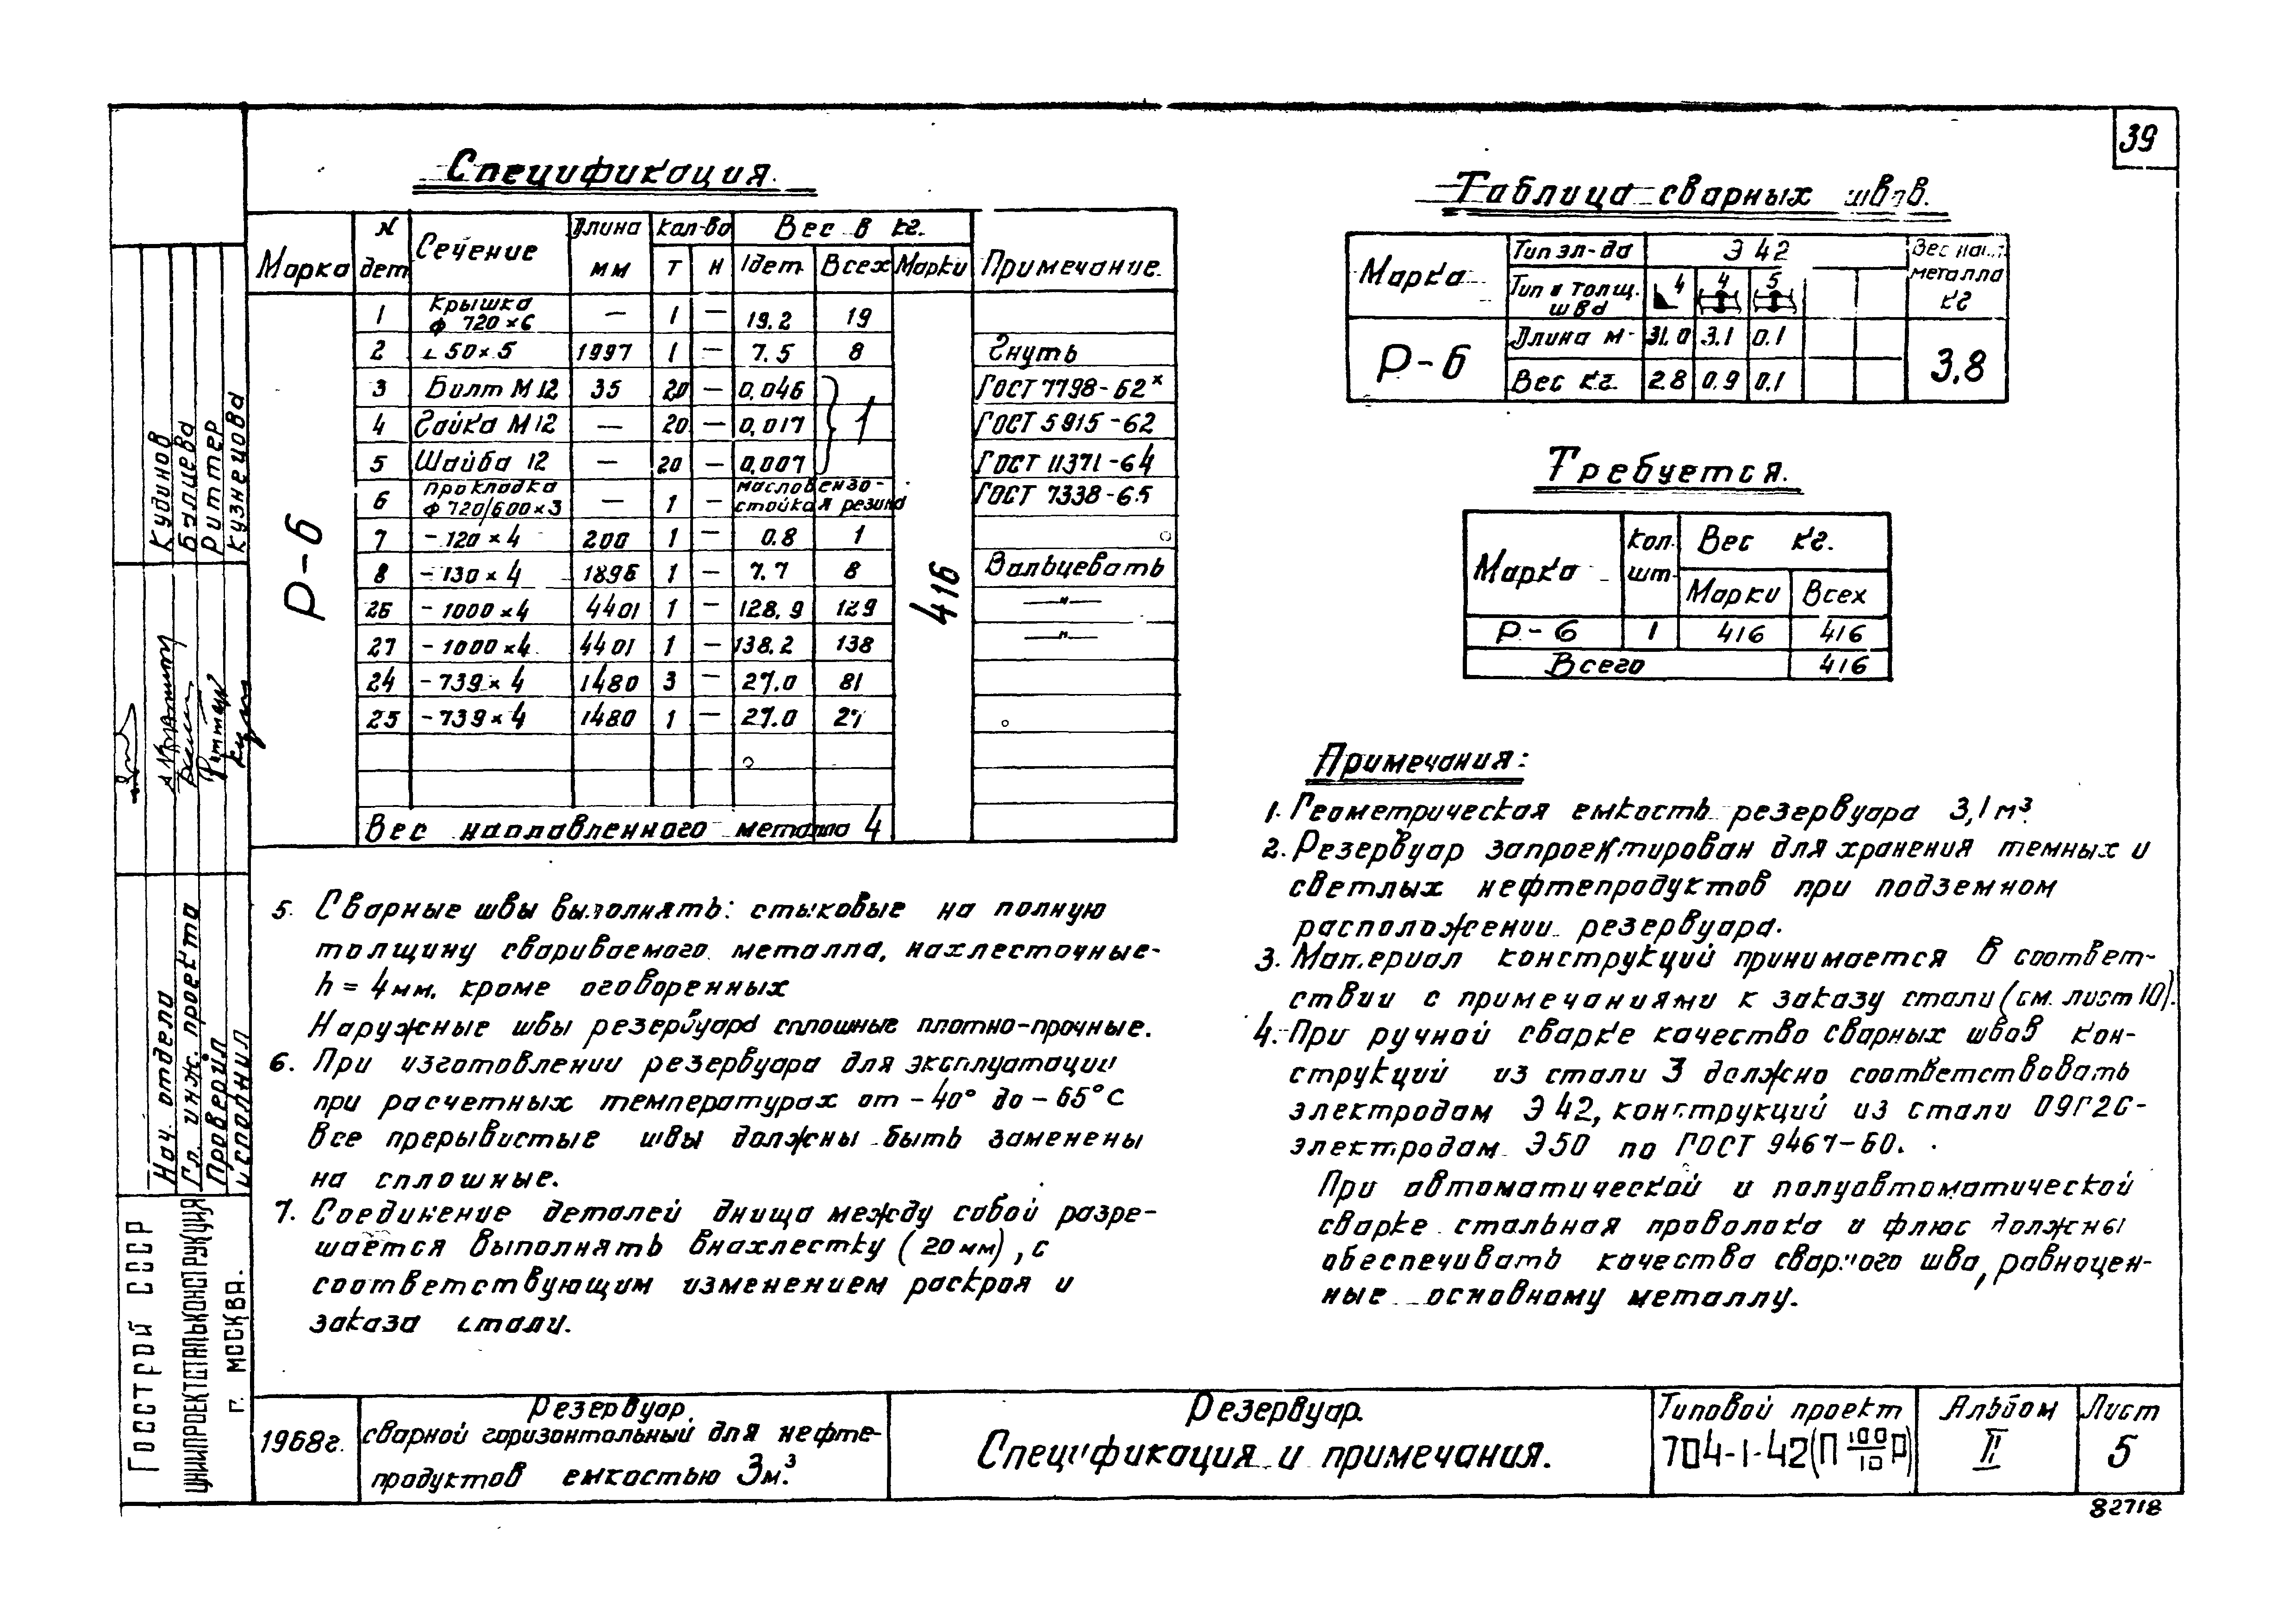 39
Спецификация.
Марка N дет. Сечение Длина мм Кол-во Т Н Вес в кг. 1дет. Всех Марки Примечание.
Р-6 416
1 Крышка ф 720×6 — 1 — 19.2 19
2 ∟50×5 1997 1 — 7.5 8 Гнуть
3 Болт М12 35 20 — 0,046 ГОСТ 7798-62ˣ
4 Гайка М12 — 20 — 0,017 1 ГОСТ 5915-62
5 Шайба 12 — 20 — 0,007 ГОСТ 11371-64
6 Прокладка ф 720/600×3 — 1 — маслобензостойкая резина ГОСТ 7338-65
7 -120×4 200 1 — 0.8 1
8 -130×4 1896 1 — 7.7 8 Вальцевать
26 -1000×4 4401 1 — 128.9 129 —"—
27 -1000×4 4401 1 — 138.2 138 —"—
24 -739×4 1480 3 — 27.0 81
25 -739×4 1480 1 — 27.0 27
Вес наплавленного металла 4
Таблица сварных швов.
Марка Тип эл-да Э 42 Вес нап. металла кг
Тип и толщ. шва 4 4 5
Р-6 Длина м 31.0 3.1 0.1 3,8
Вес кг. 2.8 0.9 0.1
Требуется.
Марка Кол. шт. Вес кг.
Марки Всех
Р-6 1 416 416
Всего 416
Примечания:
1. Геометрическая емкость резервуара 3,1 м³.
2. Резервуар запроектирован для хранения темных и
светлых нефтепродуктов при подземном
расположении резервуара.
3. Материал конструкций принимается в соответ-
ствии с примечаниями к заказу стали (см. лист 10).
4. При ручной сварке качество сварных швов кон-
струкций из стали 3 должно соответствовать
электродам Э 42, конструкций из стали 09Г2С-
электродам Э50 по ГОСТ 9467-60.
При автоматической и полуавтоматической
сварке стальная проволока и флюс должны
обеспечивать качества сварного шва, равноцен-
ные основному металлу.
5. Сварные швы выполнять: стыковые на полную
толщину свариваемого металла, нахлесточные-
h = 4мм, кроме оговоренных
Наружные швы резервуара сплошные плотно-прочные.
6. При изготовлении резервуара для эксплуатации
при расчетных температурах от -40° до -65°С
все прерывистые швы должны быть заменены
на сплошные.
7. Соединение деталей днища между собой разре-
шается выполнять внахлестку (20 мм), с
соответствующим изменением раскроя и
заказа стали.
Кудинов
Риттер
Кузнецова
Нач. отдела
Гл. инж. проекта
Проверил
Исполнил
Госстрой СССР
ЦНИИПРОЕКТСТАЛЬКОНСТРУКЦИЯ
г. МОСКВА.
1968г.
Резервуар.
сварной горизонтальный для нефте-
продуктов емкостью 3м³.
Резервуар.
Спецификация и примечания.
Типовой проект
704-1-42(П 100/10 Р)
Альбом
II
Лист
5
82718